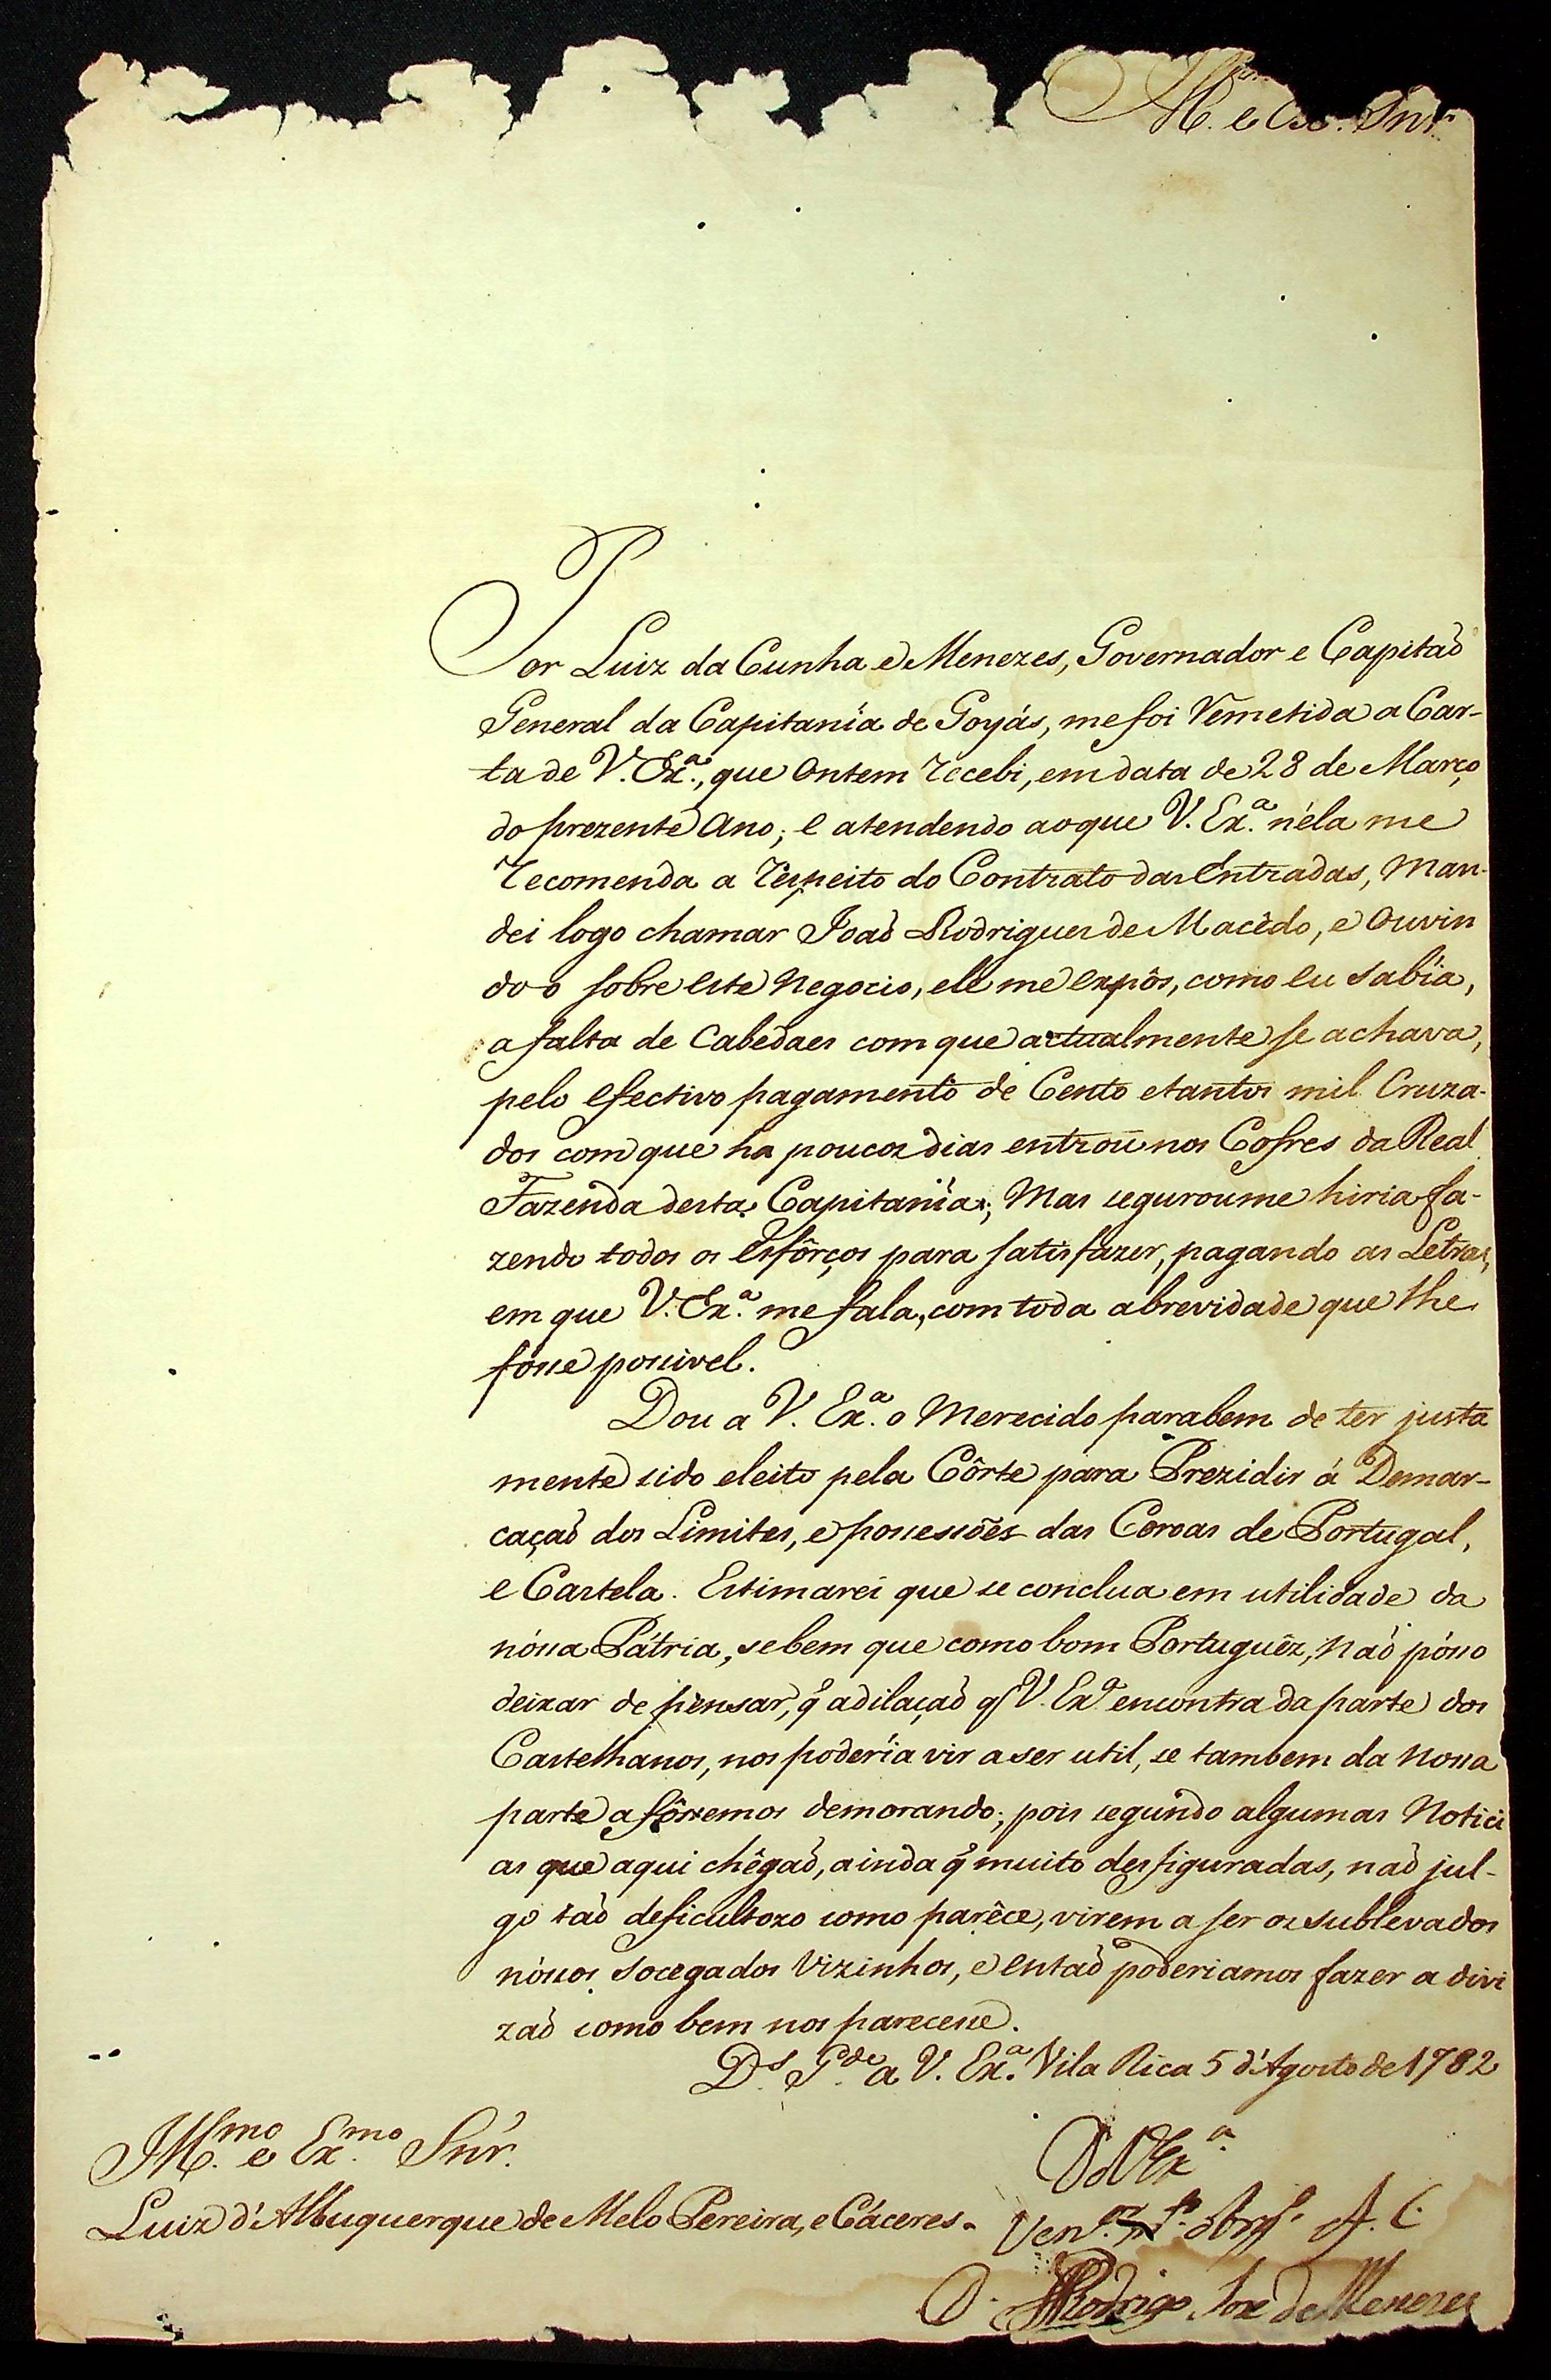 Ill.mo e Exc.mo Snr.
Por Luiz da Cunha e Menezes, Governador e Capitaõ
General da Capitanía de Goyás, me foi remetida a Car-
ta de V. Ex.ª, que ontem recebi, em data de 28 de Março
do prezente Ano; e atendendo ao que V. Ex.ª néla me
recomenda a respeito do Contrato das Entradas, Man-
dei logo chamar Joaõ Rodrigues de Macêdo, e ouvin
do o sobre este negocio, ele me expôs, como eu sabîa,
a falta de Cabedaes com que actualmente se achava,
pelo efectivo pagamento de Cento e tantos mil Cruza-
dos com que ha poucos dias entroû nos Cofres da Real
Fazenda desta Capitanîa; Mas seguroume hiria fa-
zendo todos os esfôrços para satisfazer, pagando as Letras,
em que V. Ex.ª me fala, com toda a brevidade que lhe
fosse possivel.
Dou a V. Ex.ª o Merecido parabem de ter justa
mente sido eleito pela Côrte para Prezidir á Demar-
caçaõ dos Limites, e possessões das Coroas de Portugal,
e Castela. Estimarei que se conclua em utilidade da
nóssa Pátria, se bem que como bom Portuguêz, naõ pósso
deixar de pensar, q̃ a dilaçaõ q̃ V. Ex.ª encontra da parte dos
Castelhanos, nos podería vir a ser util, se tambem da nossa
parte a fôssemos demorando; pois segundo algumas Notici
as que aqui chêgaõ, ainda q̃ muito desfiguradas, naõ jul-
go taõ deficultozo como parêce, virem a ser os sublevados
nóssos socegados Vizinhos, e entaõ poderiamos fazer a divi
zaõ como bem nos parecesse.
D.s G.de a V. Ex.ª Vila Rica 5 d'Agosto de 1782
Ill.mo e Ex.mo Snr.
D V Ex.ª
Luiz d'Albuquerque de Melo Pereira, e Cáceres.
Ven.or A. C.
D. Rodrigo Joze de Menezes